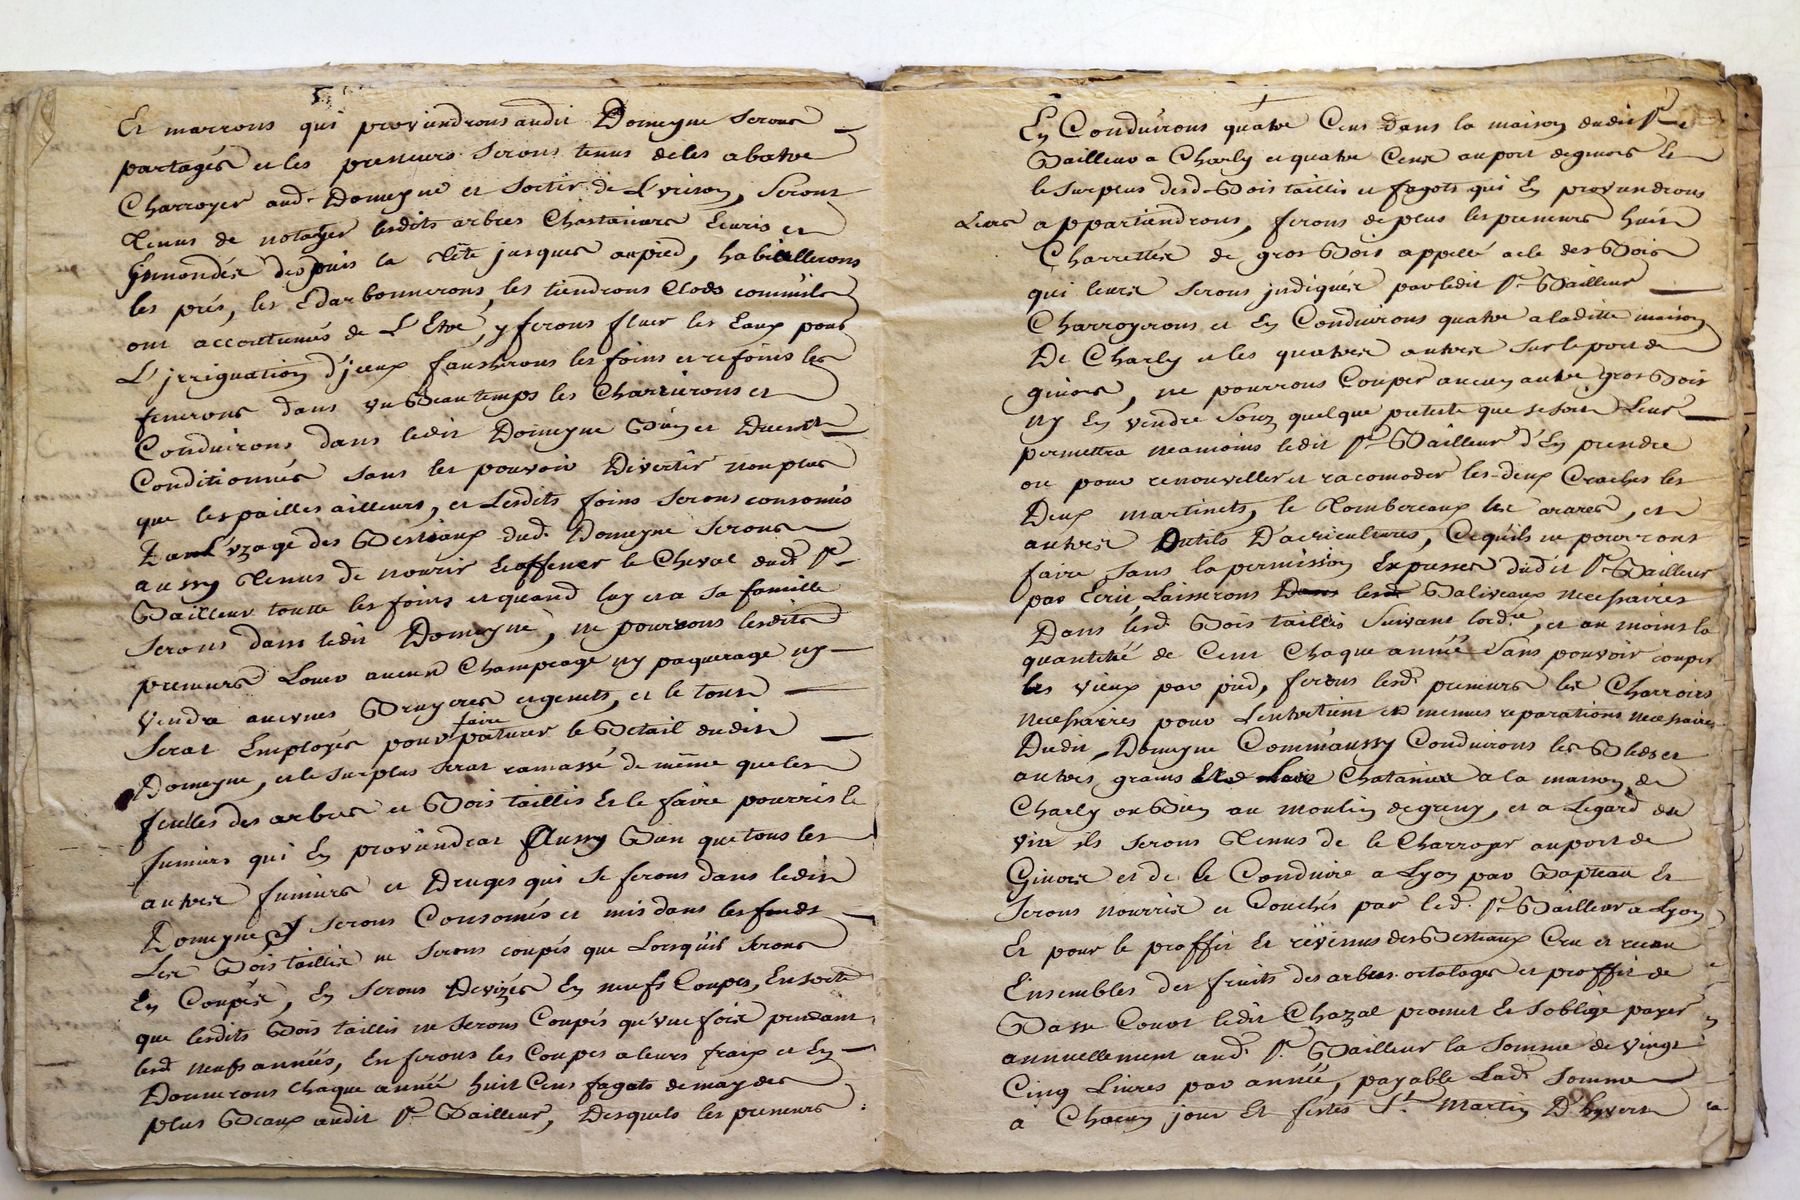 Et marrons qui proviendrons audit Domeyne Serons
partagés et les preneurs Serons tenus de les abatre
Charroyer aud. Domeyne et Sortir de L'vrison, Seront
Tenus de notayer lesdits arbres Chastaniers Leuris et
Emondés despuis la Tête jusques au pied, habiellerons
les prés, les Edarbonnerons, les tiendrons Clods comm'ils
ont accoutumés de L'Etre, y ferons fluer les Eaux pour
L'jrriguation d'jceux faucherons les foins et refoins les
fenerons dans vn Beau temps les Charrierons et
Conduirons dans ledit Domeyne Bien et Duemt
Conditionnés Sans les pouvoir Divertir non plus
que les pailles ailleurs, et Lesdits foins Serons consomés
Dans L'vzage des Bestiaux dud. Domeyne Serons
aussy Tenus de nourir le Cheval dud. Sr
Bailleur toutte les fois et quand luy et a Sa famille
Serons dans ledit Domeyne, ne pourrons lesdits
preneurs Louer aucun Champeage ny paquerage ny
Vendre aucunes Bruyeres et genets, et le tout
Serat Employés pour faire paturer le Betail dudit
Domeyne, et le Surplus Serat ramassé de même que les
feuilles des arbres et Bois taillis Et le faire pourrir le
fumiers qui En proviendrat Aussy Bien que tous les
autres fumiers et Druges qui Se ferons dans ledit
Domeyne Serons Consomés et mis dans les fonds
Les Bois taillis ne Serons coupés que Lorsqu'ils Serons
En Coupes, En Serons Devizés En neufs Coupes, En sorte
que lesdits Bois taillis ne Serons Coupés qu'vne fois pendant
lesd. neufs années, En ferons les Coupes a leurs fraix et En
Donnerons Chaque année huit Cens fagots de may des
plus Beaux audit Sr Bailleur, Desquels les preneurs
En Conduirons quatre Cens Dans la maison dudit Sr
Bailleur a Charly et quatre Cens au port de givors Et
le Surplus desd. Bois taillis et fagots qui En proviendrons
Leurs appartiendrons, ferons de plus les preneurs huit
Charrettés de gros Bois appellé acle des Bois
qui leurs Serons jndiqués par ledit Sr Bailleur
Charroyerons et En Conduirons quatre a la ditte maison
De Charly et les quatres autres Sur le port de
givors, ne pourrons Couper aucun autre gros Bois
ny En vendre Souz quelque pretexte que se soit Leur
permettra neamoins ledit Sr Bailleur d'En prendre
ou pour renouveller et racomoder les deux Craches les
Deux martinets, le Tombereaux les arares, et
autres Outils D'acricultures, Ce qu'ils ne pourront
faire Sans la permission Expresses dudit Sr Bailleur
par Ecrit Laisserons lesd. Baliveaux necessaires
Dans lesd. Bois taillis Suivant lord.re, et au moins la
quantité de Cent Chaque année Sans pouvoir couper
les vieux par pied, ferons lesd. preneurs les Charrois
necessaires pour L'entretient et menues reparations necessaires
Dudit Domeyne Comm'aussy Conduirons les Bleds et
autres grains Chatanies a la maison de
Charly ou Bien au moulin de greny, et a L'egard du
vin ils Serons Tenus de le Charroyer au port de
Givors et de le Conduire a Lyon par Bapteau Et
Serons nourris et Couchés par led. Sr Bailleur a Lyon
Et pour le proffit Et revenus des Bestiaux Cru et recru
Ensembles des fruits des arbres ortolages et proffit de
Basse Court ledit Chazal promet Et S'oblige payer
annuellement aud. Sr Bailleur la Somme de vingt
Cinq Livres par année, payable Lad. Somme
a Chacun jour Et festes St Martin D'hyvert